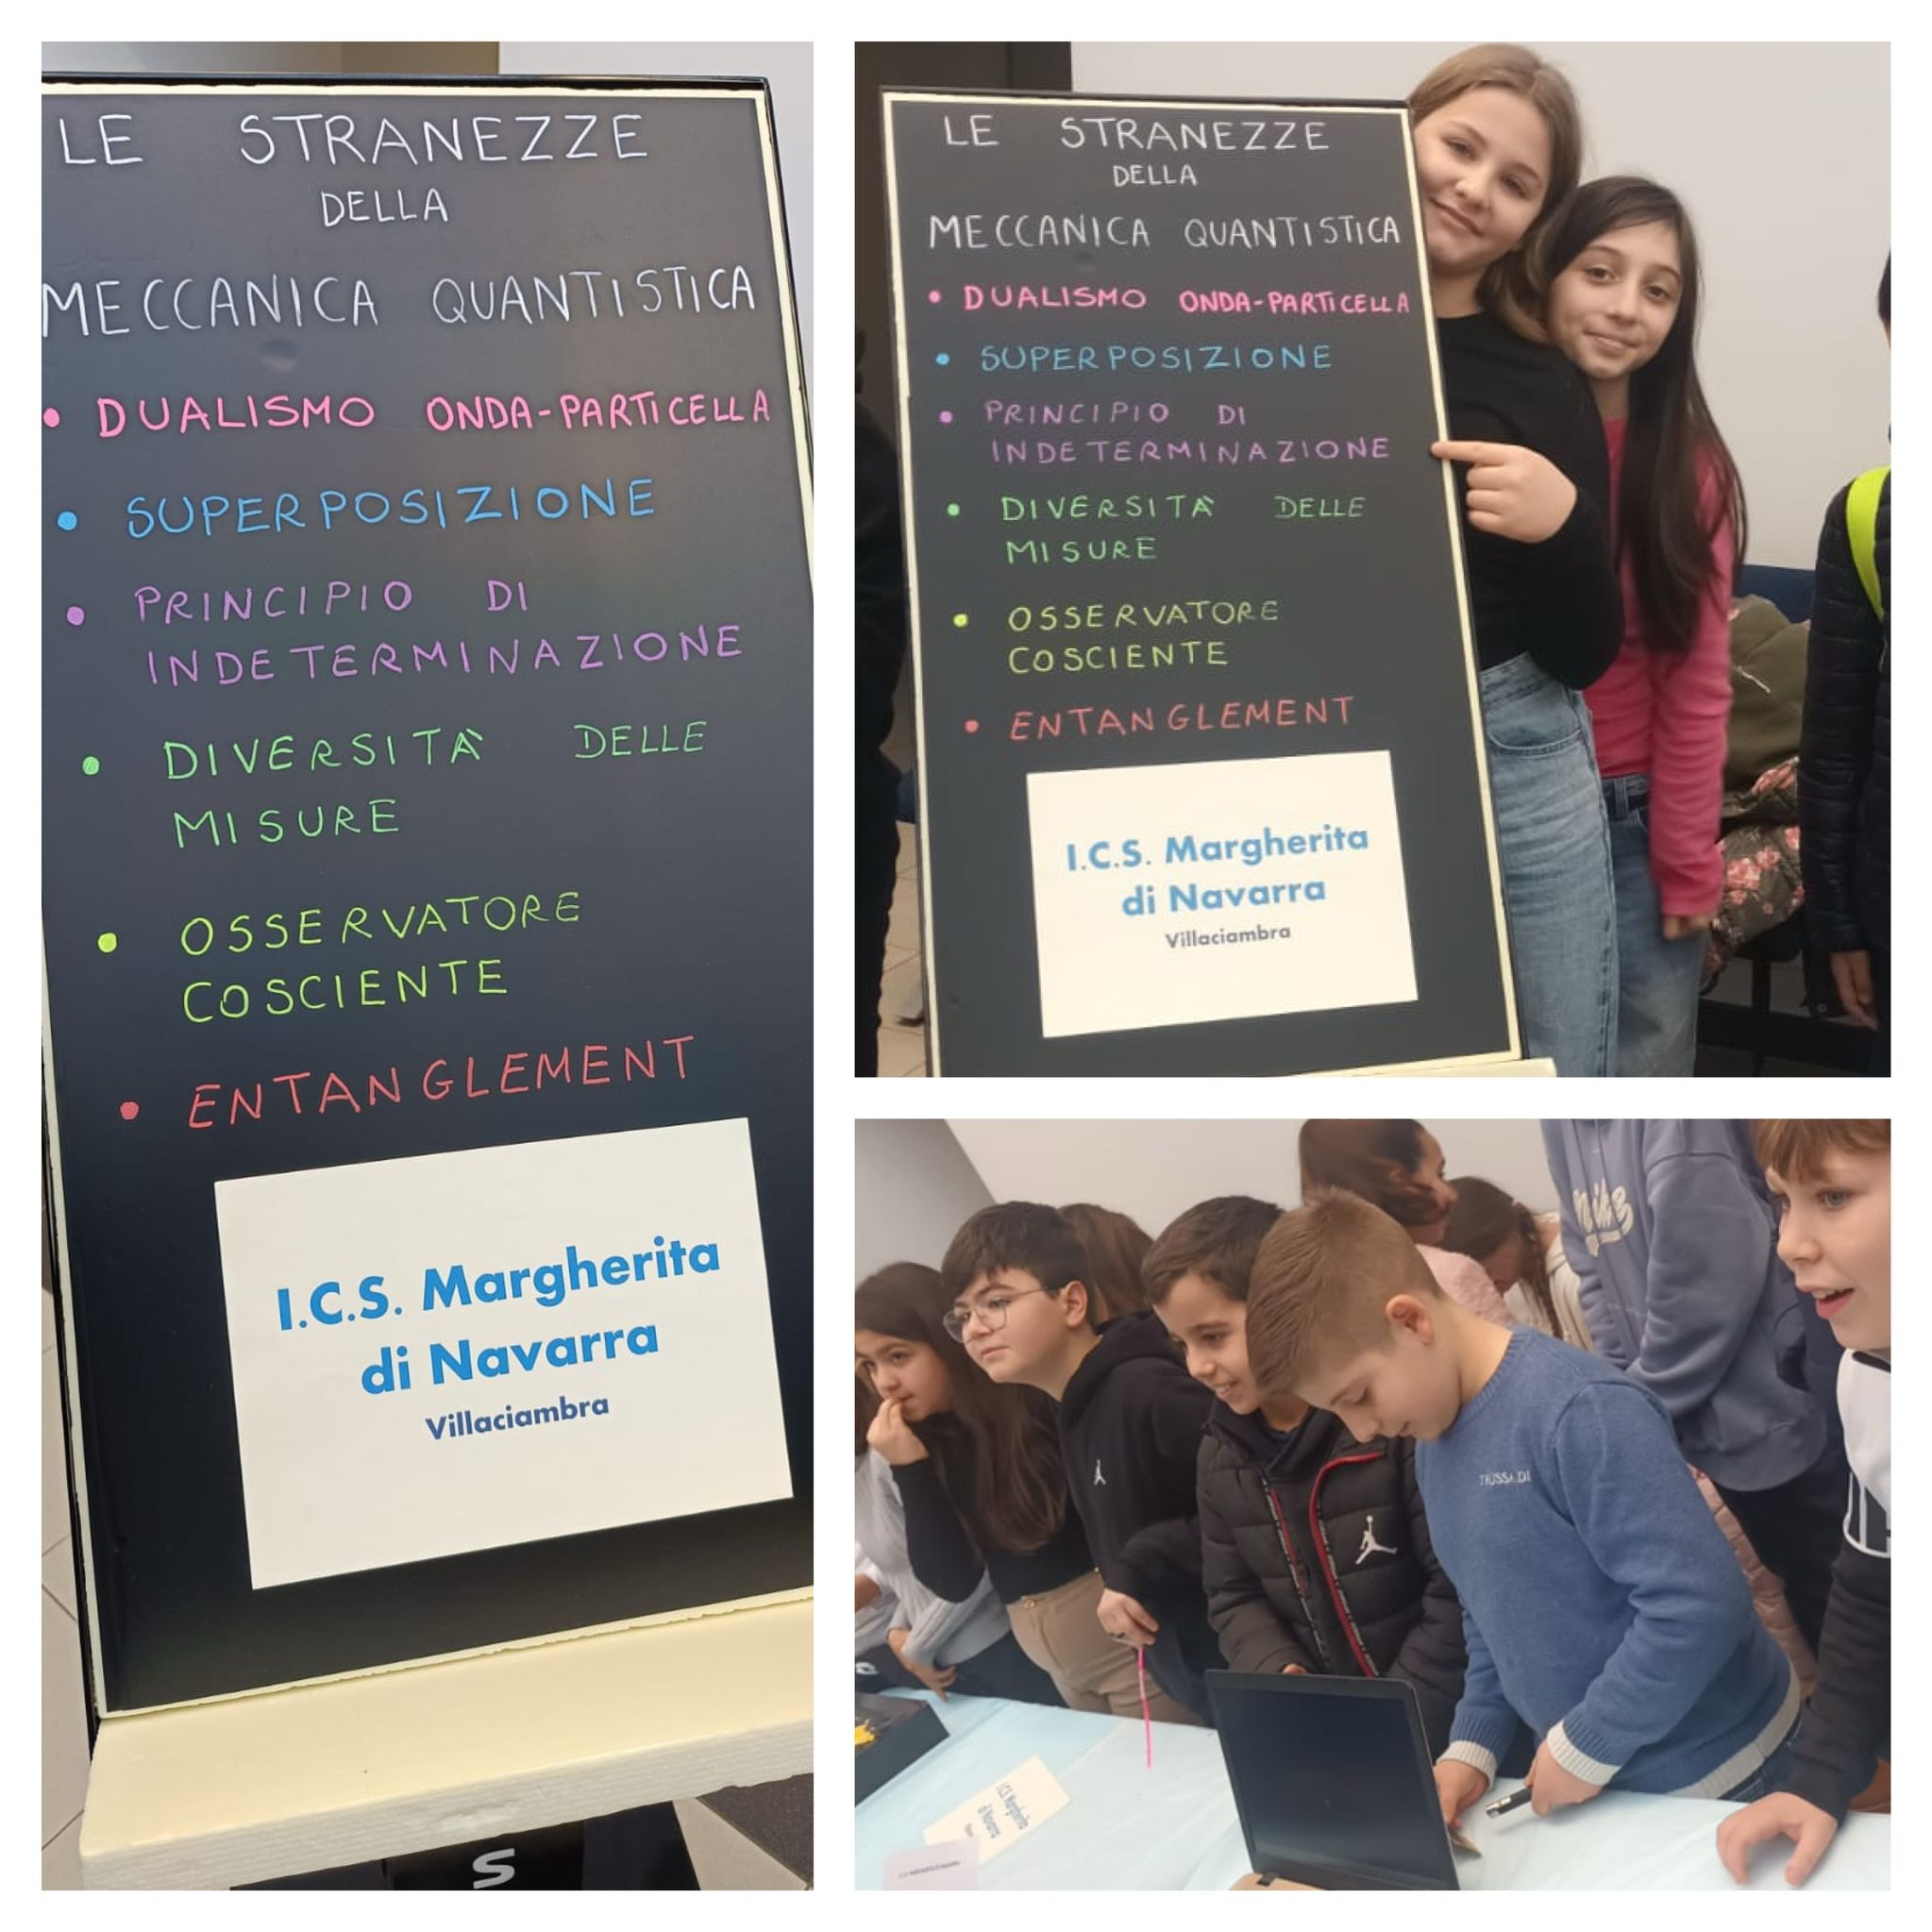 LE STRANEZZE
DELLA
MECCANICA QUANTISTICA
• DUALISMO ONDA-PARTICELLA
• SUPERPOSIZIONE
• PRINCIPIO DI
INDETERMINAZIONE
• DIVERSITÀ DELLE
MISURE
• OSSERVATORE
COSCIENTE
• ENTANGLEMENT
I.C.S. Margherita
di Navarra
Villaciambra
S
LE STRANEZZE
DELLA
MECCANICA QUANTISTICA
• DUALISMO ONDA-PARTICELLA
• SUPERPOSIZIONE
• PRINCIPIO DI
INDETERMINAZIONE
• DIVERSITÀ DELLE
MISURE
• OSSERVATORE
COSCIENTE
• ENTANGLEMENT
I.C.S. Margherita
di Navarra
Villaciambra
TRUSSARDI
I.C.S. Margherita
di Navarra